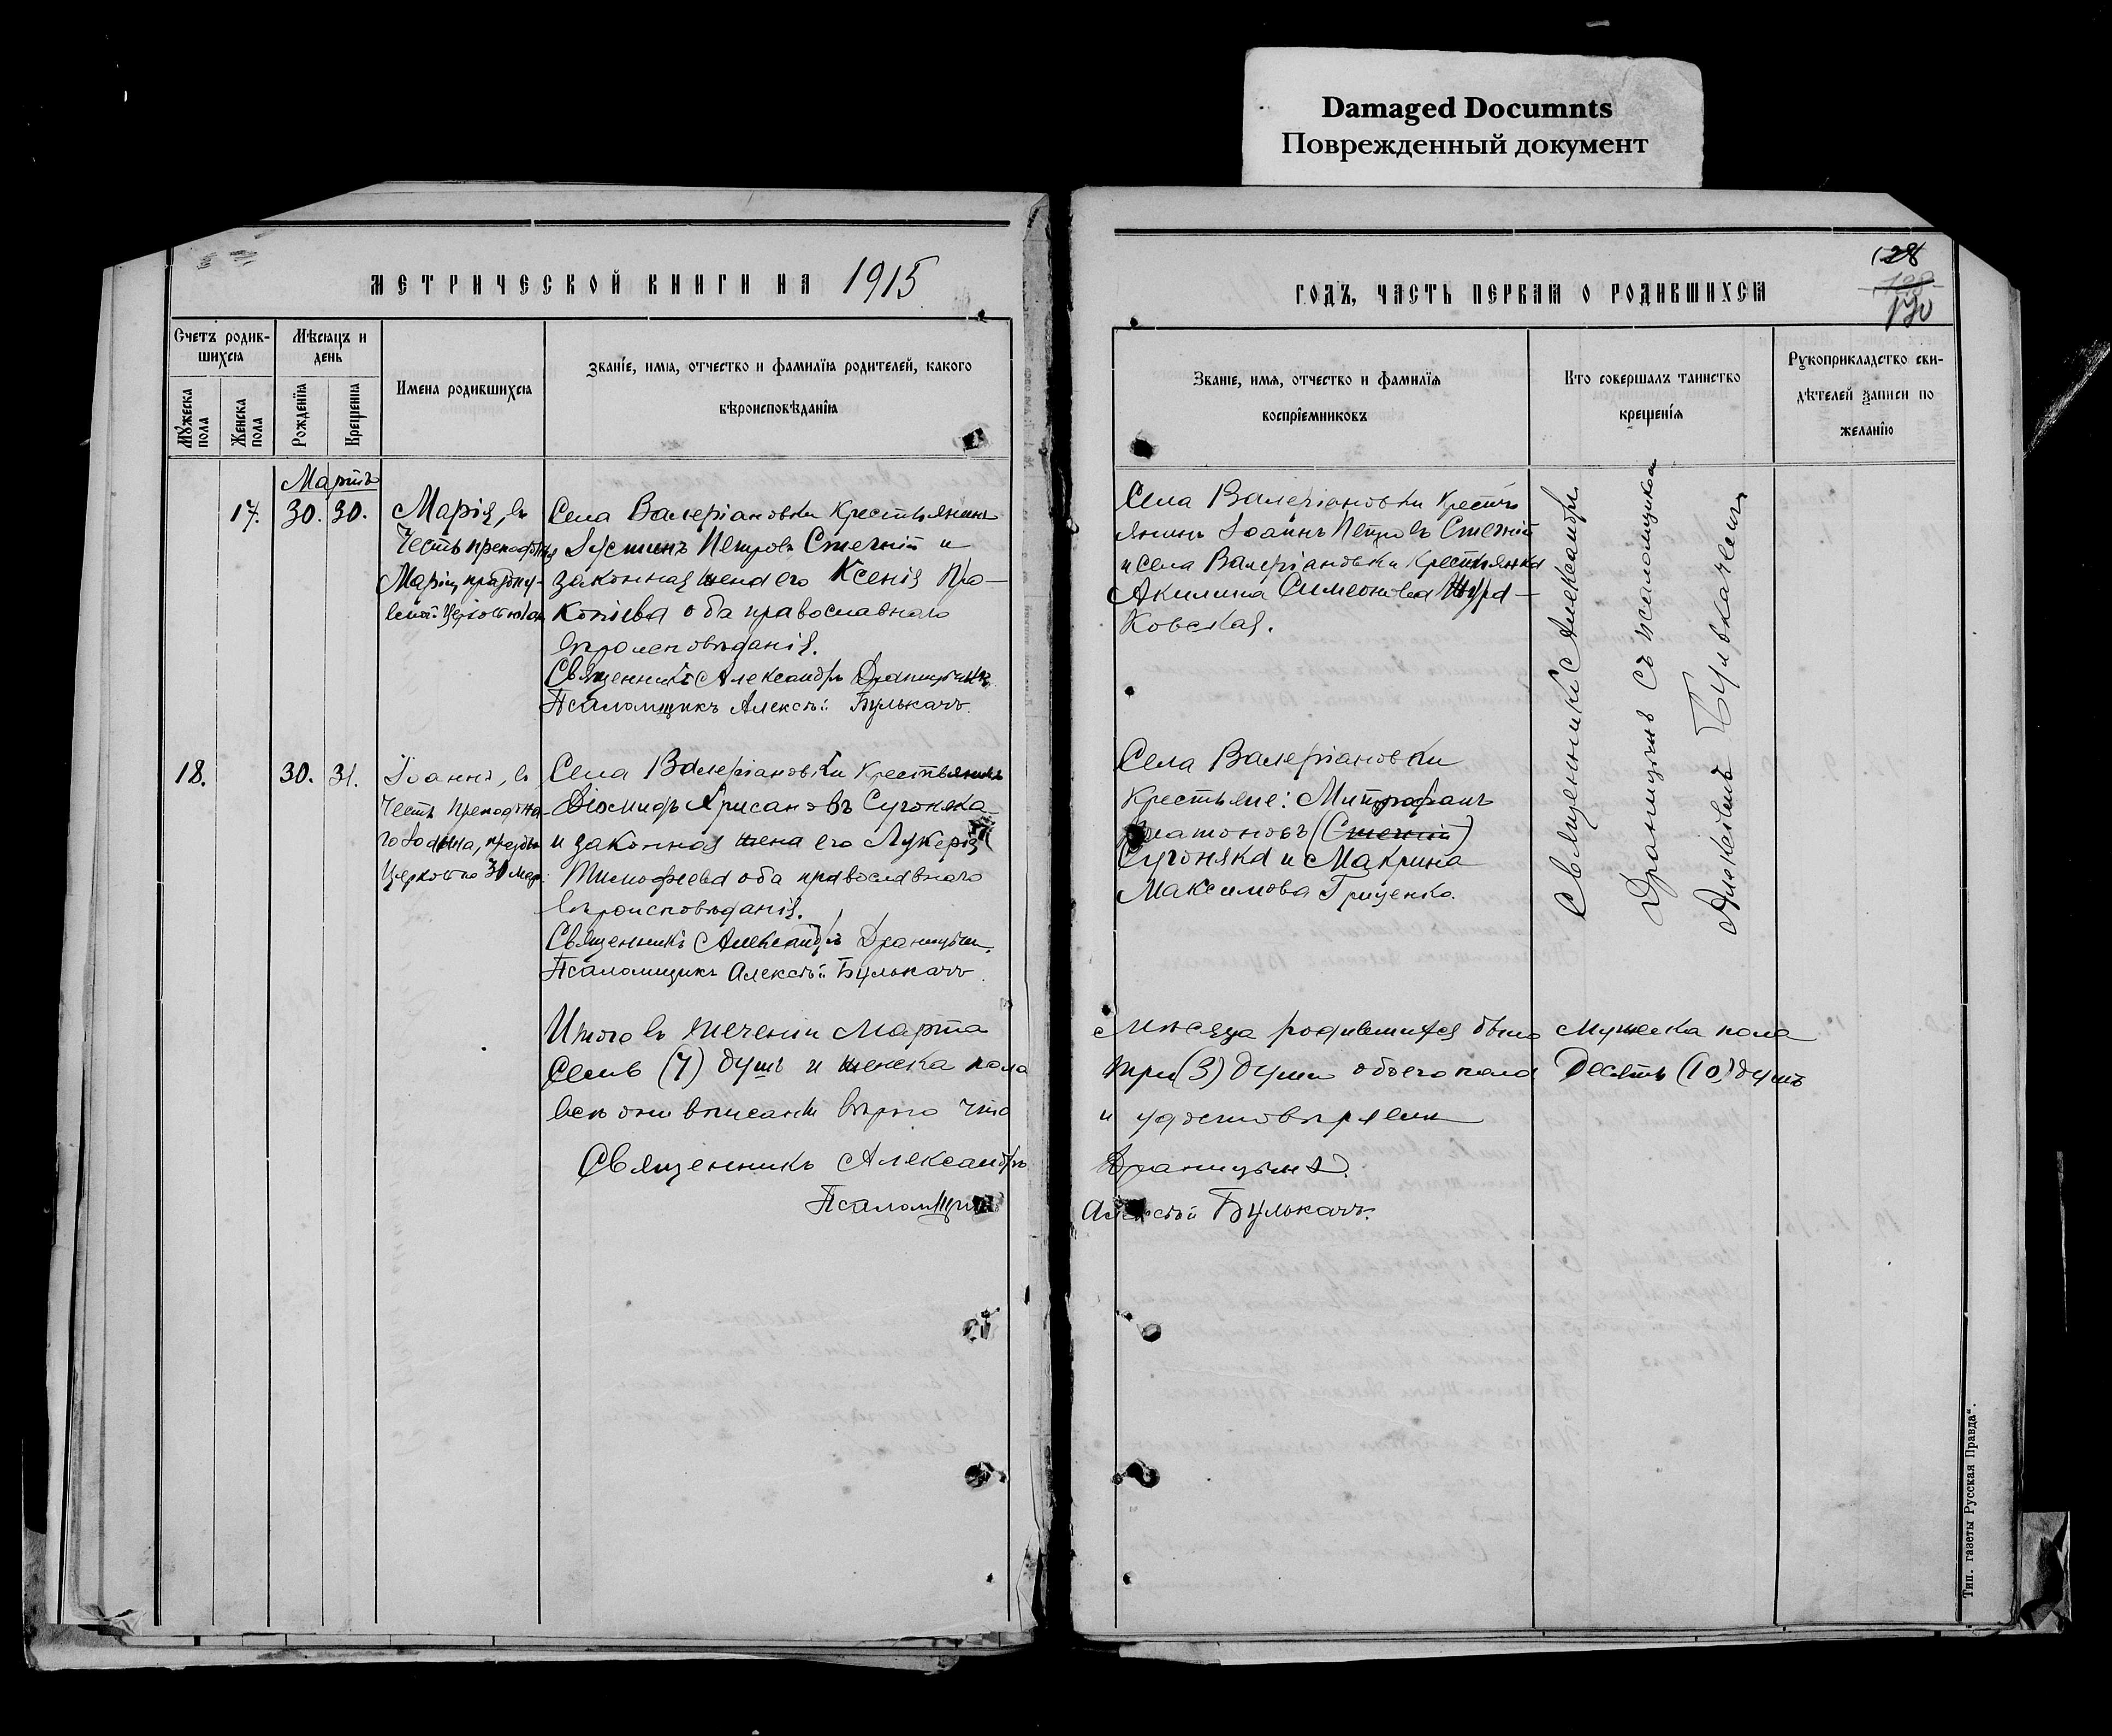 Damaged Documnts
Поврежденный документ
МЕТРИЧЕСКОЙ КНИГИ НА 1915
Счетъ родив-
шихся
Мѣсяцъ и
день
Мужеска
пола
Женска
пола
Рожденїя
Крещенїя
Имена родившихся
Званїе, имя, отчество и фамилїя родителей, какого
вѣроисповѣданїя
Мартъ
17.
30. 30.
Марія, въ
Честь препод
Маріи, праздну-
Села Валеріановки Крестьянинъ
Іустинъ Петровъ Стечній и
законная жена его Ксенія Про-
копіева оба православнаго
вѣроисповѣданія.
Священникъ Александръ Драницынъ
Псаломщикъ Алексѣй Булькачъ.
18.
30. 31.
Іоаннъ, въ
Честь Преподобна-
го Іоанна, праздн
Церковью 30 Мар.
Села Валеріановки Крестьянинъ
Діомидъ Хрисановъ Сугоняка
и законная жена его Лукерія
Тимофеева оба православнаго
вѣроисповѣданія.
Священникъ Александръ Драницын.
Псаломщикъ Алексѣй Булькачъ.
Итого въ теченіи Марта
Семь (7) душъ и женска пола
всѣ они вписаны вѣрно что
Священникъ Александръ
Псаломщик
ГОДЪ, ЧАСТЬ ПЕРВАЯ О РОДИВШИХСЯ
128
130
Званїе, имя, отчество и фамилїя
воспрїемниковъ
Кто совершалъ таинство
крещенїя
Рукоприкладство сви-
дѣтелей записи по
желанїю
Села Валеріановки Кресть
янинъ Іоаннъ Петровъ Стечній
и села Валеріановки Крестьянка
Акилина Симеонова Жура-
Ковская.
Села Валеріановки
Крестьяне: Митрофанъ
Платоновъ (Стечній)
Сугоняка и Макрина
Максимова Гриценко.
Священникъ Александръ
Драницынъ съ псаломщикомъ
Алексѣемъ Булькачемъ
Мѣсяца родившихся было мужеска пола
три (3) души обоего пола Десять (10) душъ
и удостовѣряемъ
Драницынъ.
Алексѣй Булькачъ.
Тип. газеты Русская Правда“.